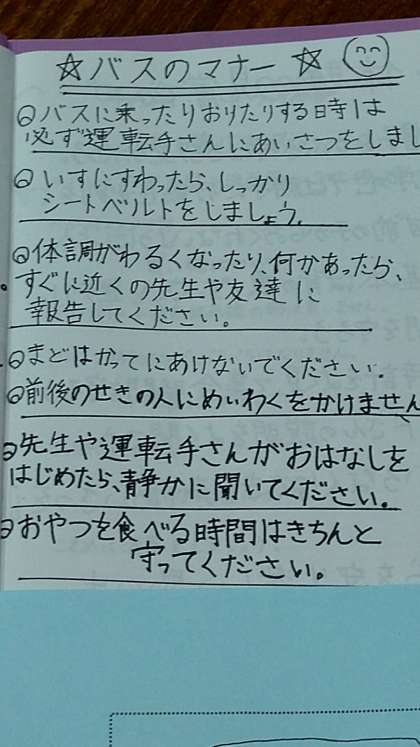 ☆バスのマナー☆
◎バスに乗ったりおりたりする時は
必ず運転手さんにあいさつをしまし
◎いすにすわったら、しっかり
シートベルトをしましょう。
◎体調がわるくなったり、何かあったら、
すぐに近くの先生や友達に
報告してください。
◎まどはかってにあけないでください。
◎前後のせきの人にめいわくをかけません
◎先生や運転手さんがおはなしを
はじめたら、静かに聞いてください。
◎おやつを食べる時間はきちんと
守ってください。